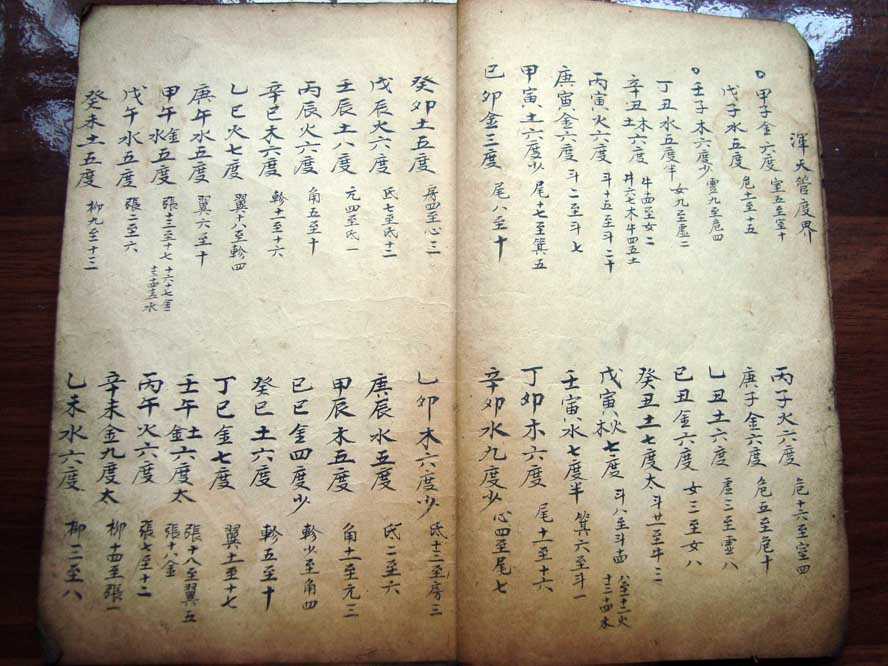 渾天管度界
○甲子金六度 室五至室十 丙子火六度 危十六至室四
戊子水五度 危十一至十五 庚子金六度 危五至危十
○壬子木六度少 虛九至危四 乙丑土六度 虛三至虛八
丁丑水五度半 女九至虛二 己丑金六度 女三至女八
辛丑木土六度 牛四至女二 牛四五土 癸丑土七度太 斗廿一至牛三
丙寅火六度 斗十五至斗二十 戊寅火木七度 斗八至斗十四 八至十一火 十二十三十四木
庚寅金六度 斗二至斗七 壬寅水七度半 箕六至斗一
甲寅土六度少 尾十七至箕五 丁卯木六度 尾十一至十六
己卯金三度 尾八至十 辛卯水九度少 心四至尾七
癸卯土五度 房四至心三 乙卯木六度少 氐十三至房三
戊辰火六度 氐七至氐十二 庚辰水五度 氐二至六
壬辰土八度 元四至氐一 甲辰木五度 角十一至元三
丙辰火六度 角五至十 己巳金四度少 軫少至角四
辛巳木六度 軫十一至十六 癸巳土六度 軫五至十
乙巳火七度 翼十八至軫四 丁巳金七度 翼十一至十七
庚午水五度 翼六至十 壬午金土六度太 張十八至翼五 張十八金
甲午金水五度 張十三至十七 十六十七金 十三十四十五水 丙午火六度 張七至十二
戊午水五度 張二至六 辛未金九度太 柳十四至張一
癸未土五度 柳九至十三 乙未水六度 柳三至八